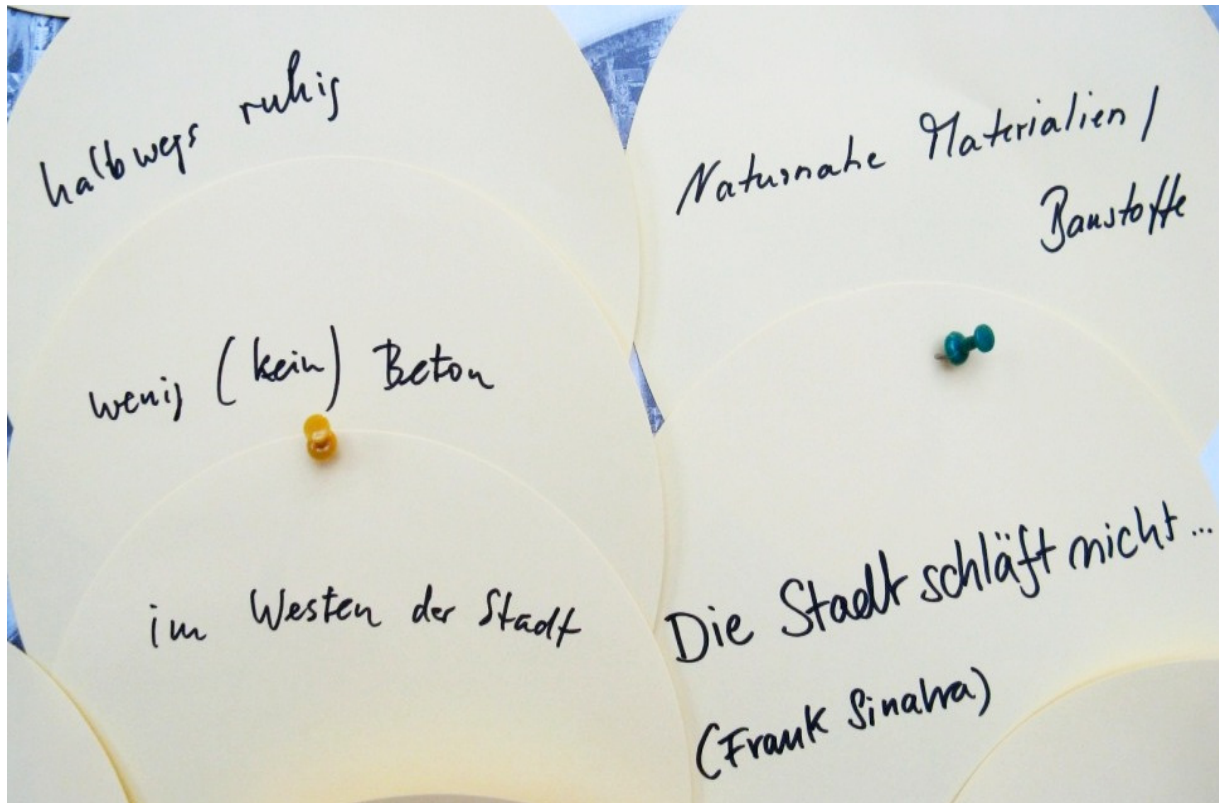 halbwegs ruhig
wenig (kein) Beton
im Westen der Stadt
Naturnahe Materialien /
Baustoffe
Die Stadt schläft nicht...
(Frank Sinatra)